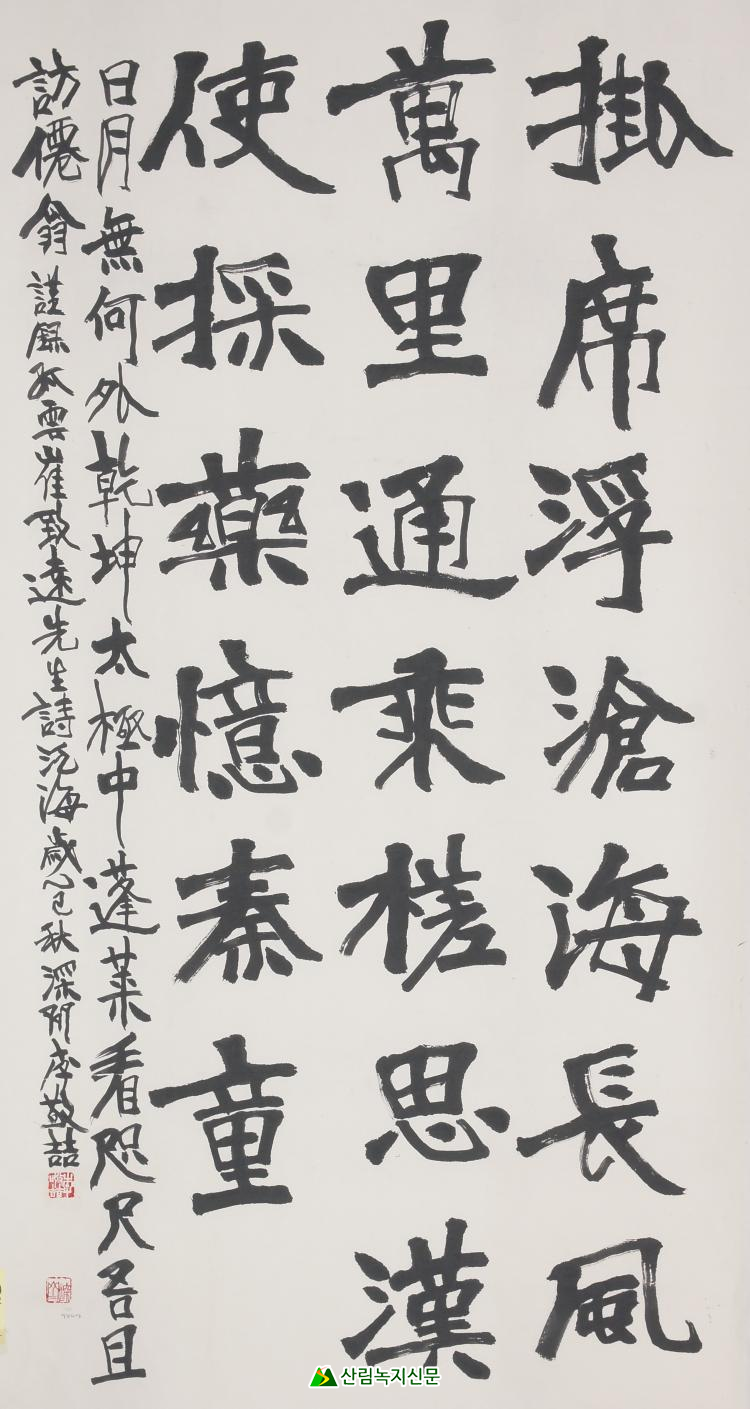 掛席浮滄海長風
萬里通乘槎思漢
使採藥憶秦童
日月無何外乾坤太極中蓬萊看咫尺吾且
訪僊翁 謹錄孤雲崔致遠先生詩泛海歲乙巳秋深閒庭敬喆
산림녹지신문